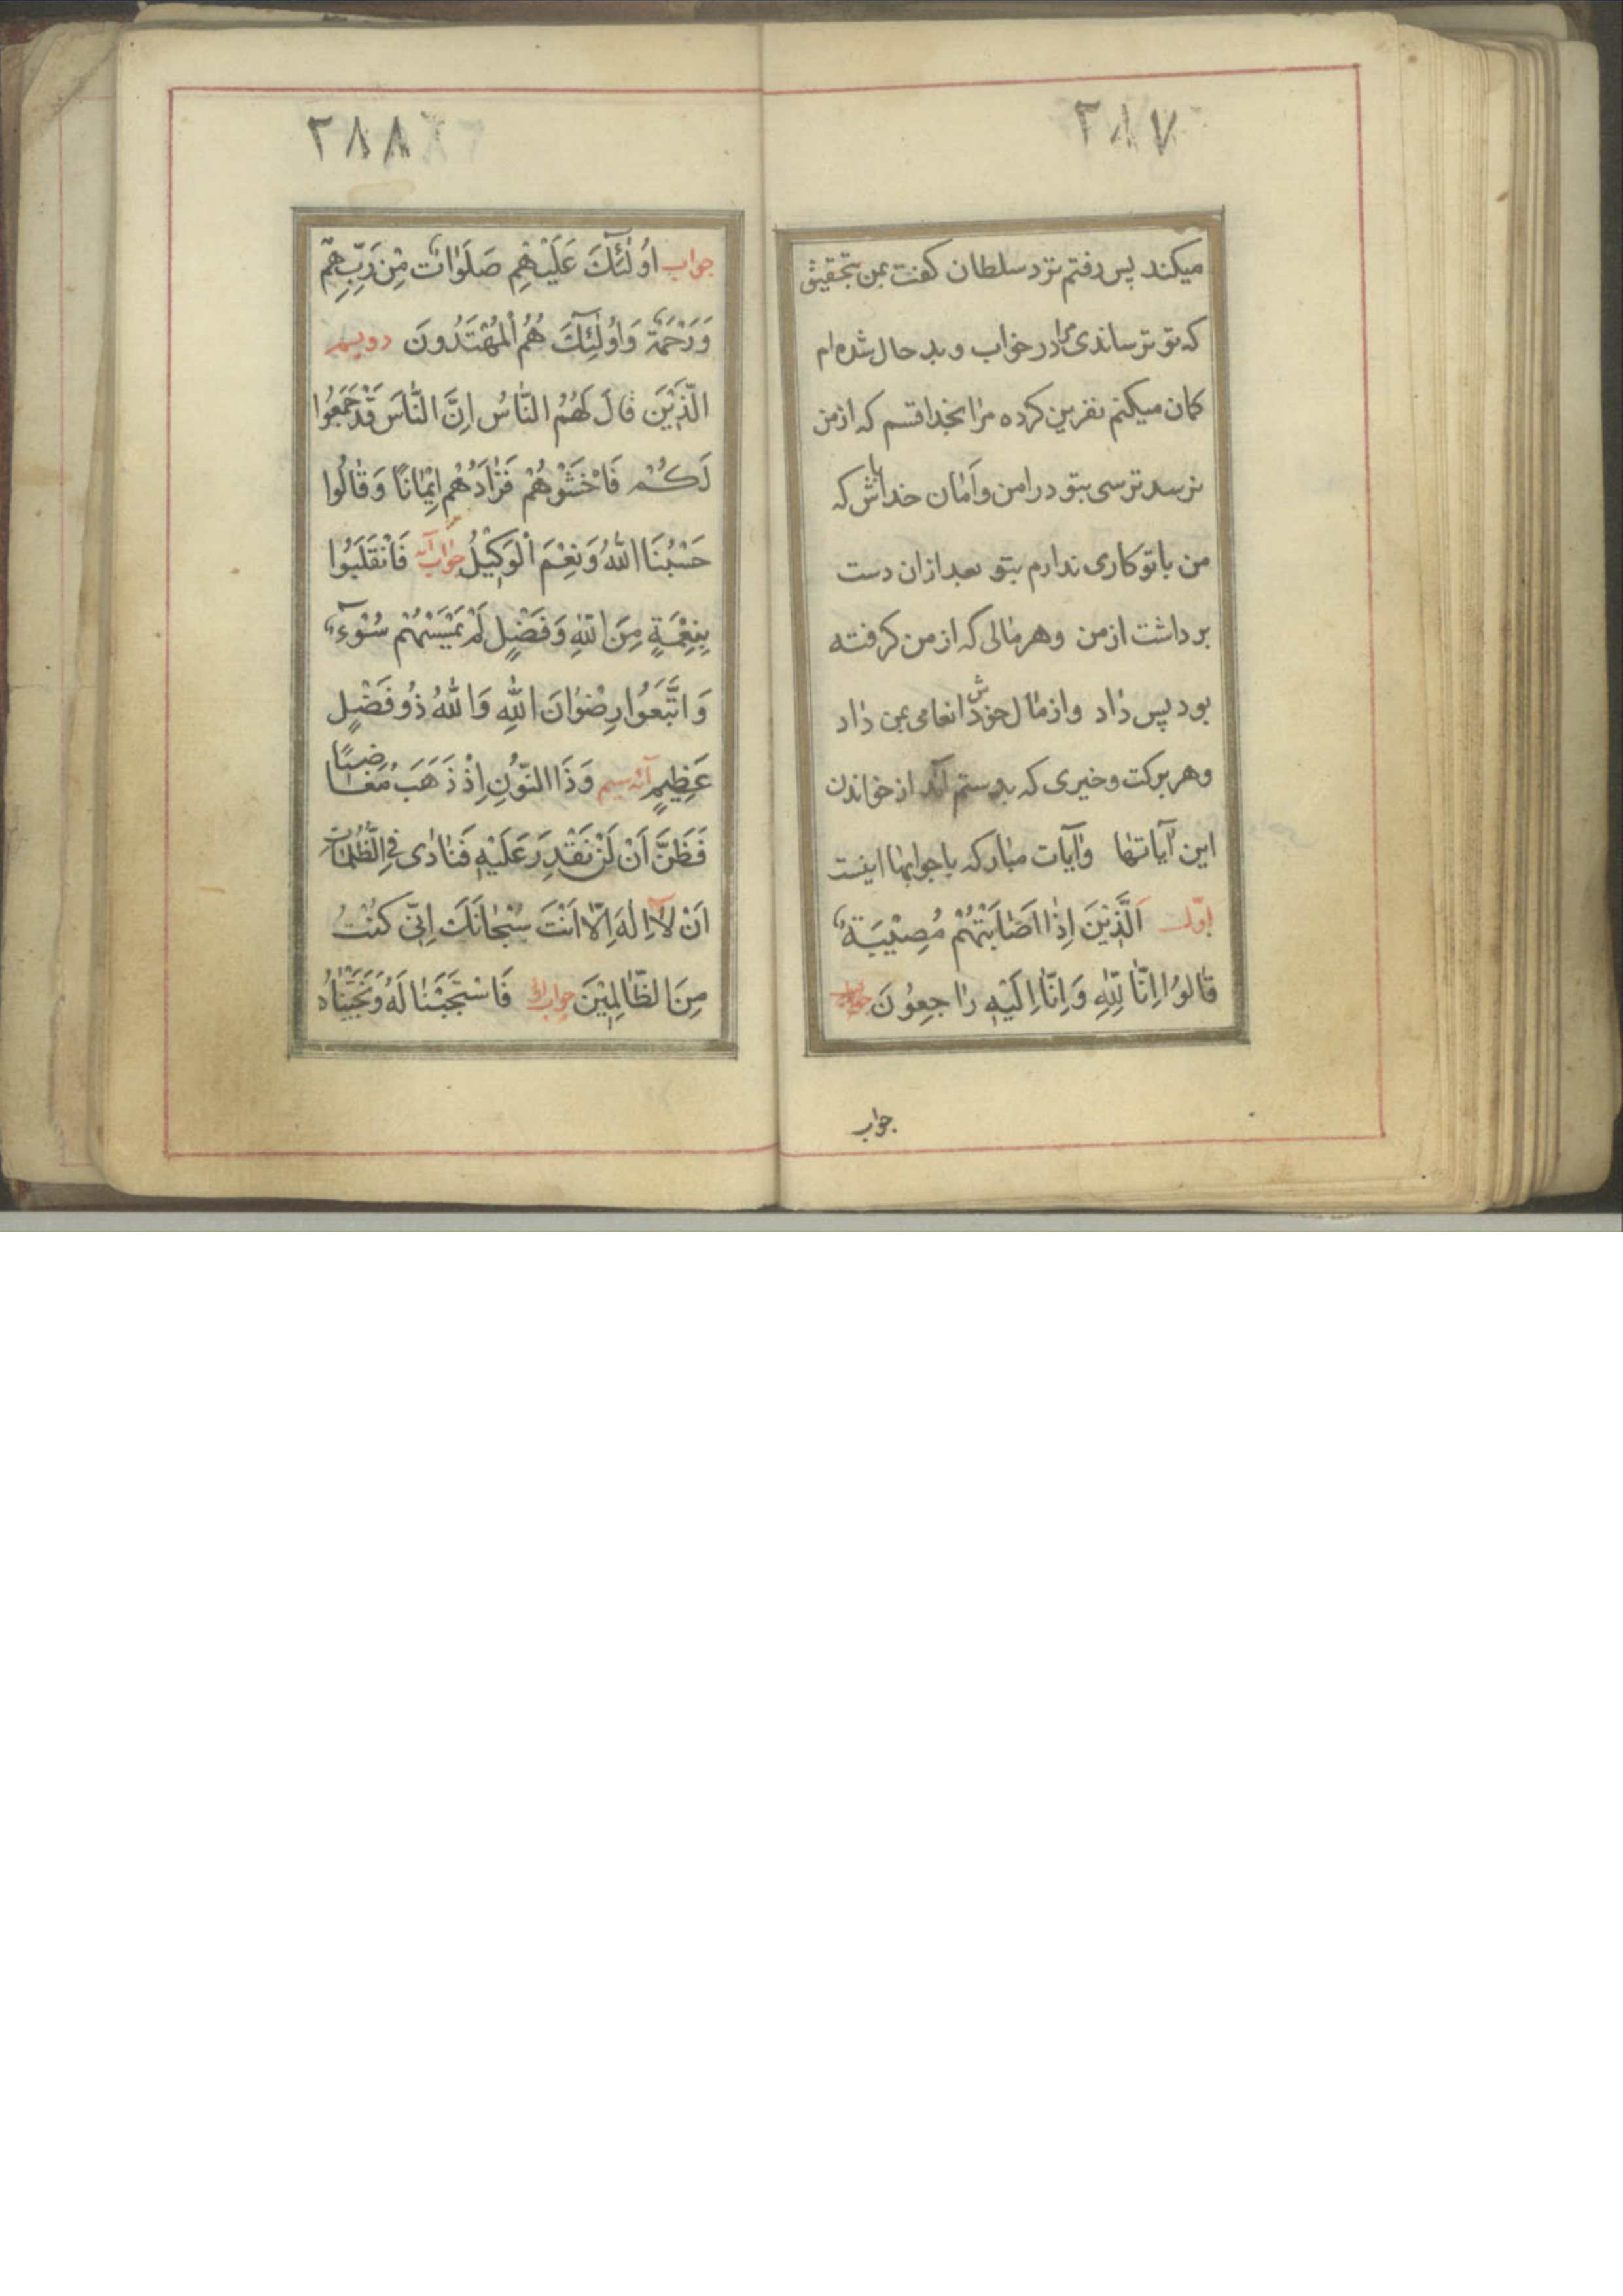 ۲۸۷
میکند پس رفتم نزد سلطان کفت بمن بتحقیق
که تو ترساندی مرا در خواب و بد حال شده‌ام
کمان میکنم نفرین کرده مرا بخدا قسم که از من
نرسد ترسی بتو در امن و اَمان خدا باش که
من با تو کاری ندارم بتو بعد ازان دست
برداشت از من وهر مالی که از من کرفته
بود پس داد واز مال خودش انعامی بمن داد
وهر برکت وخیری که بدستم آمد از خواندن
این آیاتها وآیات مبارکه با جوابها اینست
اوّل اَلَّذِیْنَ اِذٰا اَصٰابَتْهُمْ مُصِیْبَةٌ
قٰالُوْا اِنّٰا لِلّٰهِ وَاِنّٰا اِلَیْهِ رٰاجِعُوْنَ
جواب
۲۸۸
جواب اُولٰئِكَ عَلَیْهِمْ صَلَوٰاتٌ مِنْ رَبِّهِمْ
وَرَحْمَةٌ وَاُولٰئِكَ هُمُ الْمُهْتَدُونَ دویم
الَّذِیْنَ قٰالَ لَهُمُ النّٰاسُ اِنَّ النّٰاسَ قَدْ جَمَعُوا
لَكُمْ فَاخْشَوْهُمْ فَزٰادَهُمْ اِیْمٰانًا وَقٰالُوا
حَسْبُنَا اللّٰهُ وَنِعْمَ الْوَكِیْلُ جواب آیه فَانْقَلَبُوا
بِنِعْمَةٍ مِنَ اللّٰهِ وَفَضْلٍ لَمْ یَمْسَسْهُمْ سُوْءٌ
وَاتَّبَعُوا رِضْوٰانَ اللّٰهِ وَاللّٰهُ ذُو فَضْلٍ
عَظِیمٍ آیه سیم وَذَا النُّوْنِ اِذْ ذَهَبَ مُغٰاضِبًا
فَظَنَّ اَنْ لَنْ نَقْدِرَ عَلَیْهِ فَنٰادٰی فِی الظُّلُمٰاتِ
اَنْ لٰا اِلٰهَ اِلّٰا اَنْتَ سُبْحٰانَكَ اِنّی كُنْتُ
مِنَ الظّٰالِمِیْنَ جواب فَاسْتَجَبْنٰا لَهُ وَنَجَّیْنٰاهُ